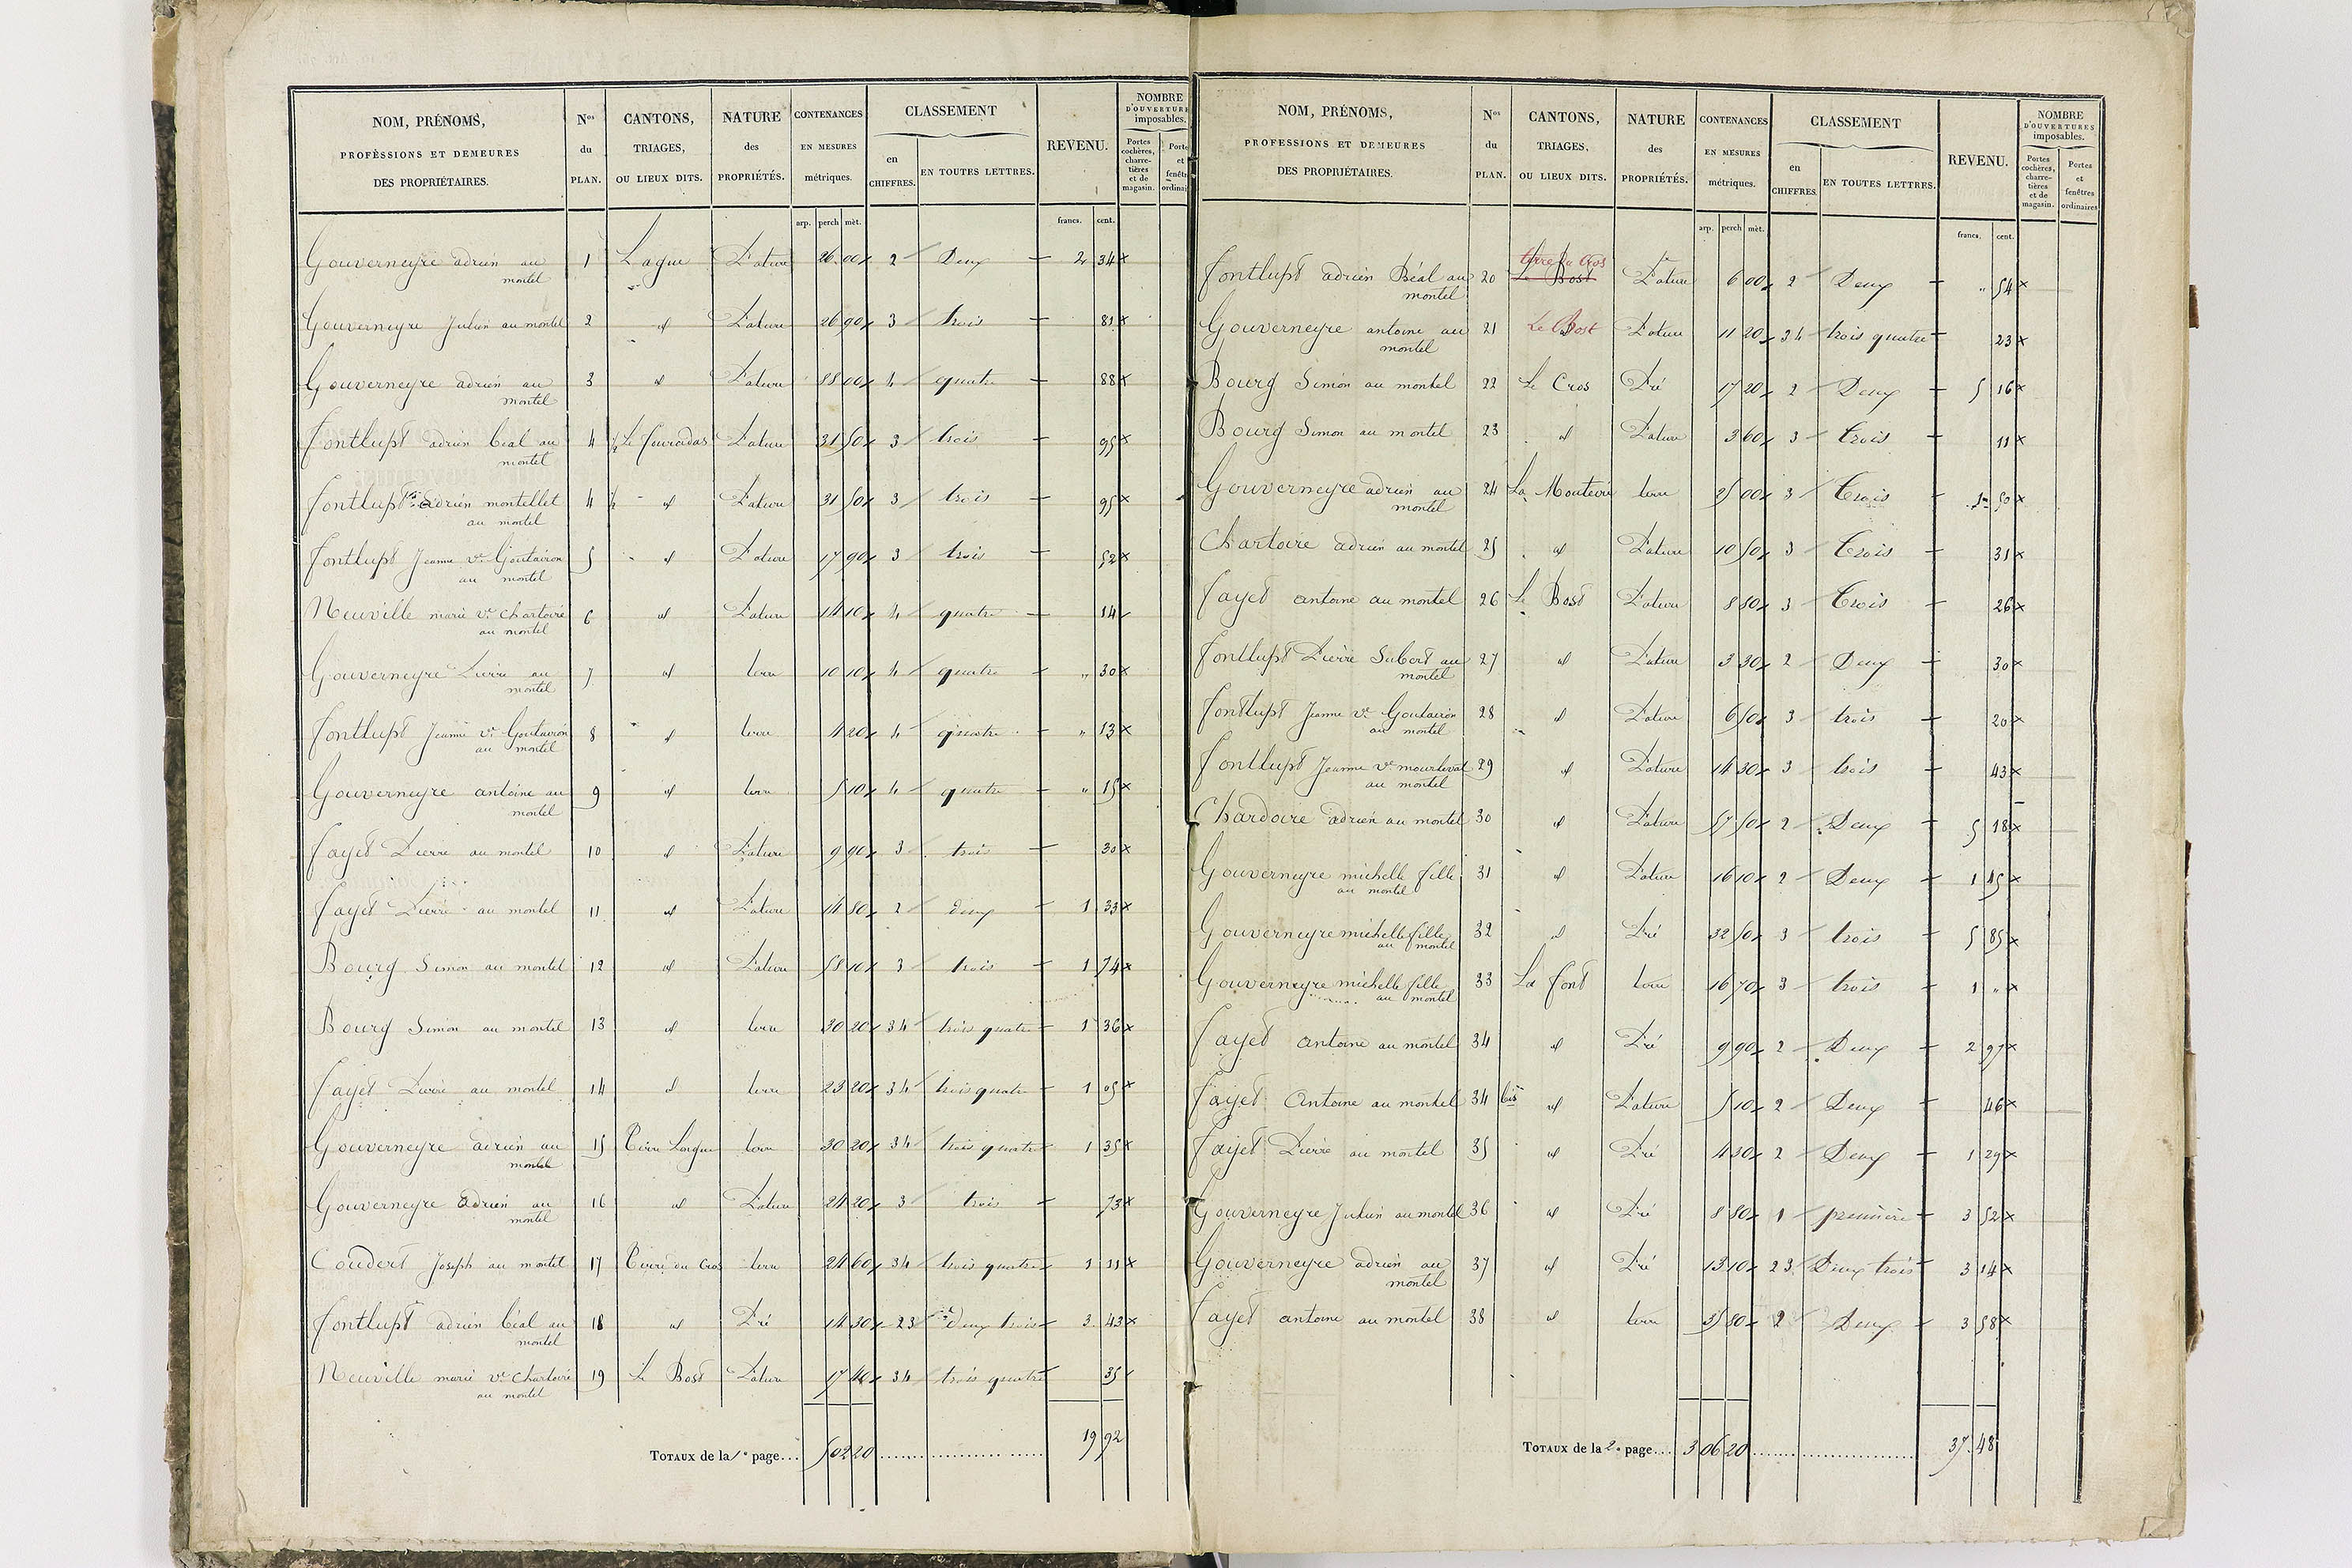 NOM, PRÉNOMS, PROFESSIONS ET DEMEURES DES PROPRIÉTAIRES. Nos du PLAN. CANTONS, TRIAGES, OU LIEUX DITS. NATURE des PROPRIÉTÉS. CONTENANCES EN MESURES métriques. CLASSEMENT en CHIFFRES. EN TOUTES LETTRES. REVENU. NOMBRE D'OUVERTURES imposables. Portes cochères, charretières et de magasin. Portes et fenêtres ordinaires
arp. perch mèt. francs. cent.
Gouverneyre adrien au montel 1 Lague Pature 26 00 2 Deux 2 34
Gouverneyre Julien au montel 2 id Pature 26 90 3 trois 81
Gouverneyre adrien au montel 3 id Pature 88 00 4 quatre 88
Fontlupt adrien béal au montel 4 ½ Le Pature 31 50 3 trois 95
Fontlupt adrien montellet au montel 4 ½ id Pature 31 50 3 trois 95
Fontlupt Jeanne ve Goutairon au montel 5 id Pature 17 90 3 trois 52
Neuville marie ve Chartoire au montel 6 id Pature 14 10 4 quatre 14
Gouverneyre Pierre au montel 7 id terre 10 10 4 quatre " 30
Fontlupt Jeanne ve Goutairon au montel 8 id terre 4 20 4 quatre " 13
Gouverneyre antoine au montel 9 id terre 5 10 4 quatre " 15
Fayet Pierre au montel 10 id Pature 9 90 3 trois 30
Fayet Pierre au montel 11 id Pature 14 80 2 deux 1 33
Bourg Simon au montel 12 id Pature 58 10 3 trois 1 74
Bourg Simon au montel 13 id terre 30 20 34 trois quatre 1 36
Fayet Pierre au montel 14 id terre 23 20 34 trois quatre 1 05
Gouverneyre adrien au montel 15 Terre Longue terre 30 20 34 trois quatre 1 35
Gouverneyre adrien au montel 16 id Pature 24 20 3 trois 73
Coudert Joseph au montel 17 Terre du Cros terre 24 60 34 trois quatre 1 11
Fontlupt adrien béal au montel 18 id Pré 14 30 23 deux trois 3 43
Neuville marie ve Chartoire au montel 19 Le Bost Pature 17 40 34 trois quatre 35
TOTAUX de la 1e page... 5 02 20 19 92
NOM, PRÉNOMS, PROFESSIONS ET DEMEURES DES PROPRIÉTAIRES. Nos du PLAN. CANTONS, TRIAGES, OU LIEUX DITS. NATURE des PROPRIÉTÉS. CONTENANCES EN MESURES métriques. CLASSEMENT en CHIFFRES. EN TOUTES LETTRES. REVENU. NOMBRE D'OUVERTURES imposables. Portes cochères, charretières et de magasin. Portes et fenêtres ordinaires
arp. perch mèt. francs. cent.
Fontlupt adrien Béal au montel 20 Le Bost Pature 6 00 2 Deux " 54
Gouverneyre antoine au montel 21 Le Bost Pature 11 20 34 trois quatre 23
Bourg Simon au montel 22 Le Cros Pré 17 20 2 Deux 5 16
Bourg Simon au montel 23 id Pature 3 60 3 trois 11
Gouverneyre adrien au montel 24 La terre 25 00 3 trois 1 50
Chartoire adrien au montel 25 id Pature 10 50 3 trois 31
Fayet antoine au montel 26 Le Bost Pature 8 80 3 trois 26
Fontlupt Pierre Subert au montel 27 id Pature 3 30 2 Deux 30
Fontlupt Jeanne ve Goutairon au montel 28 id Pature 6 50 3 trois 20
Fontlupt Jeanne ve au montel 29 id Pature 14 30 3 trois 43
Chardoire adrien au montel 30 id Pature 57 50 2 Deux 5 18
Gouverneyre michelle fille au montel 31 id Pature 16 10 2 Deux 1 45
Gouverneyre michelle fille au montel 32 id Pré 32 50 3 trois 5 85
Gouverneyre michelle fille au montel 33 La font terre 16 70 3 trois 1 "
Fayet antoine au montel 34 id Pré 9 90 2 Deux 2 97
Fayet Antoine au montel 34 bis id Pature 5 10 2 Deux 46
Fayet Pierre au montel 35 id Pré 4 30 2 Deux 1 29
Gouverneyre Julien au montel 36 id Pré 8 80 1 première 3 52
Gouverneyre adrien au montel 37 id Pré 13 10 23 Deux trois 3 14
Fayet antoine au montel 38 id terre 35 80 2 Deux 3 58
TOTAUX de la 2e page.... 3 06 20 37 48